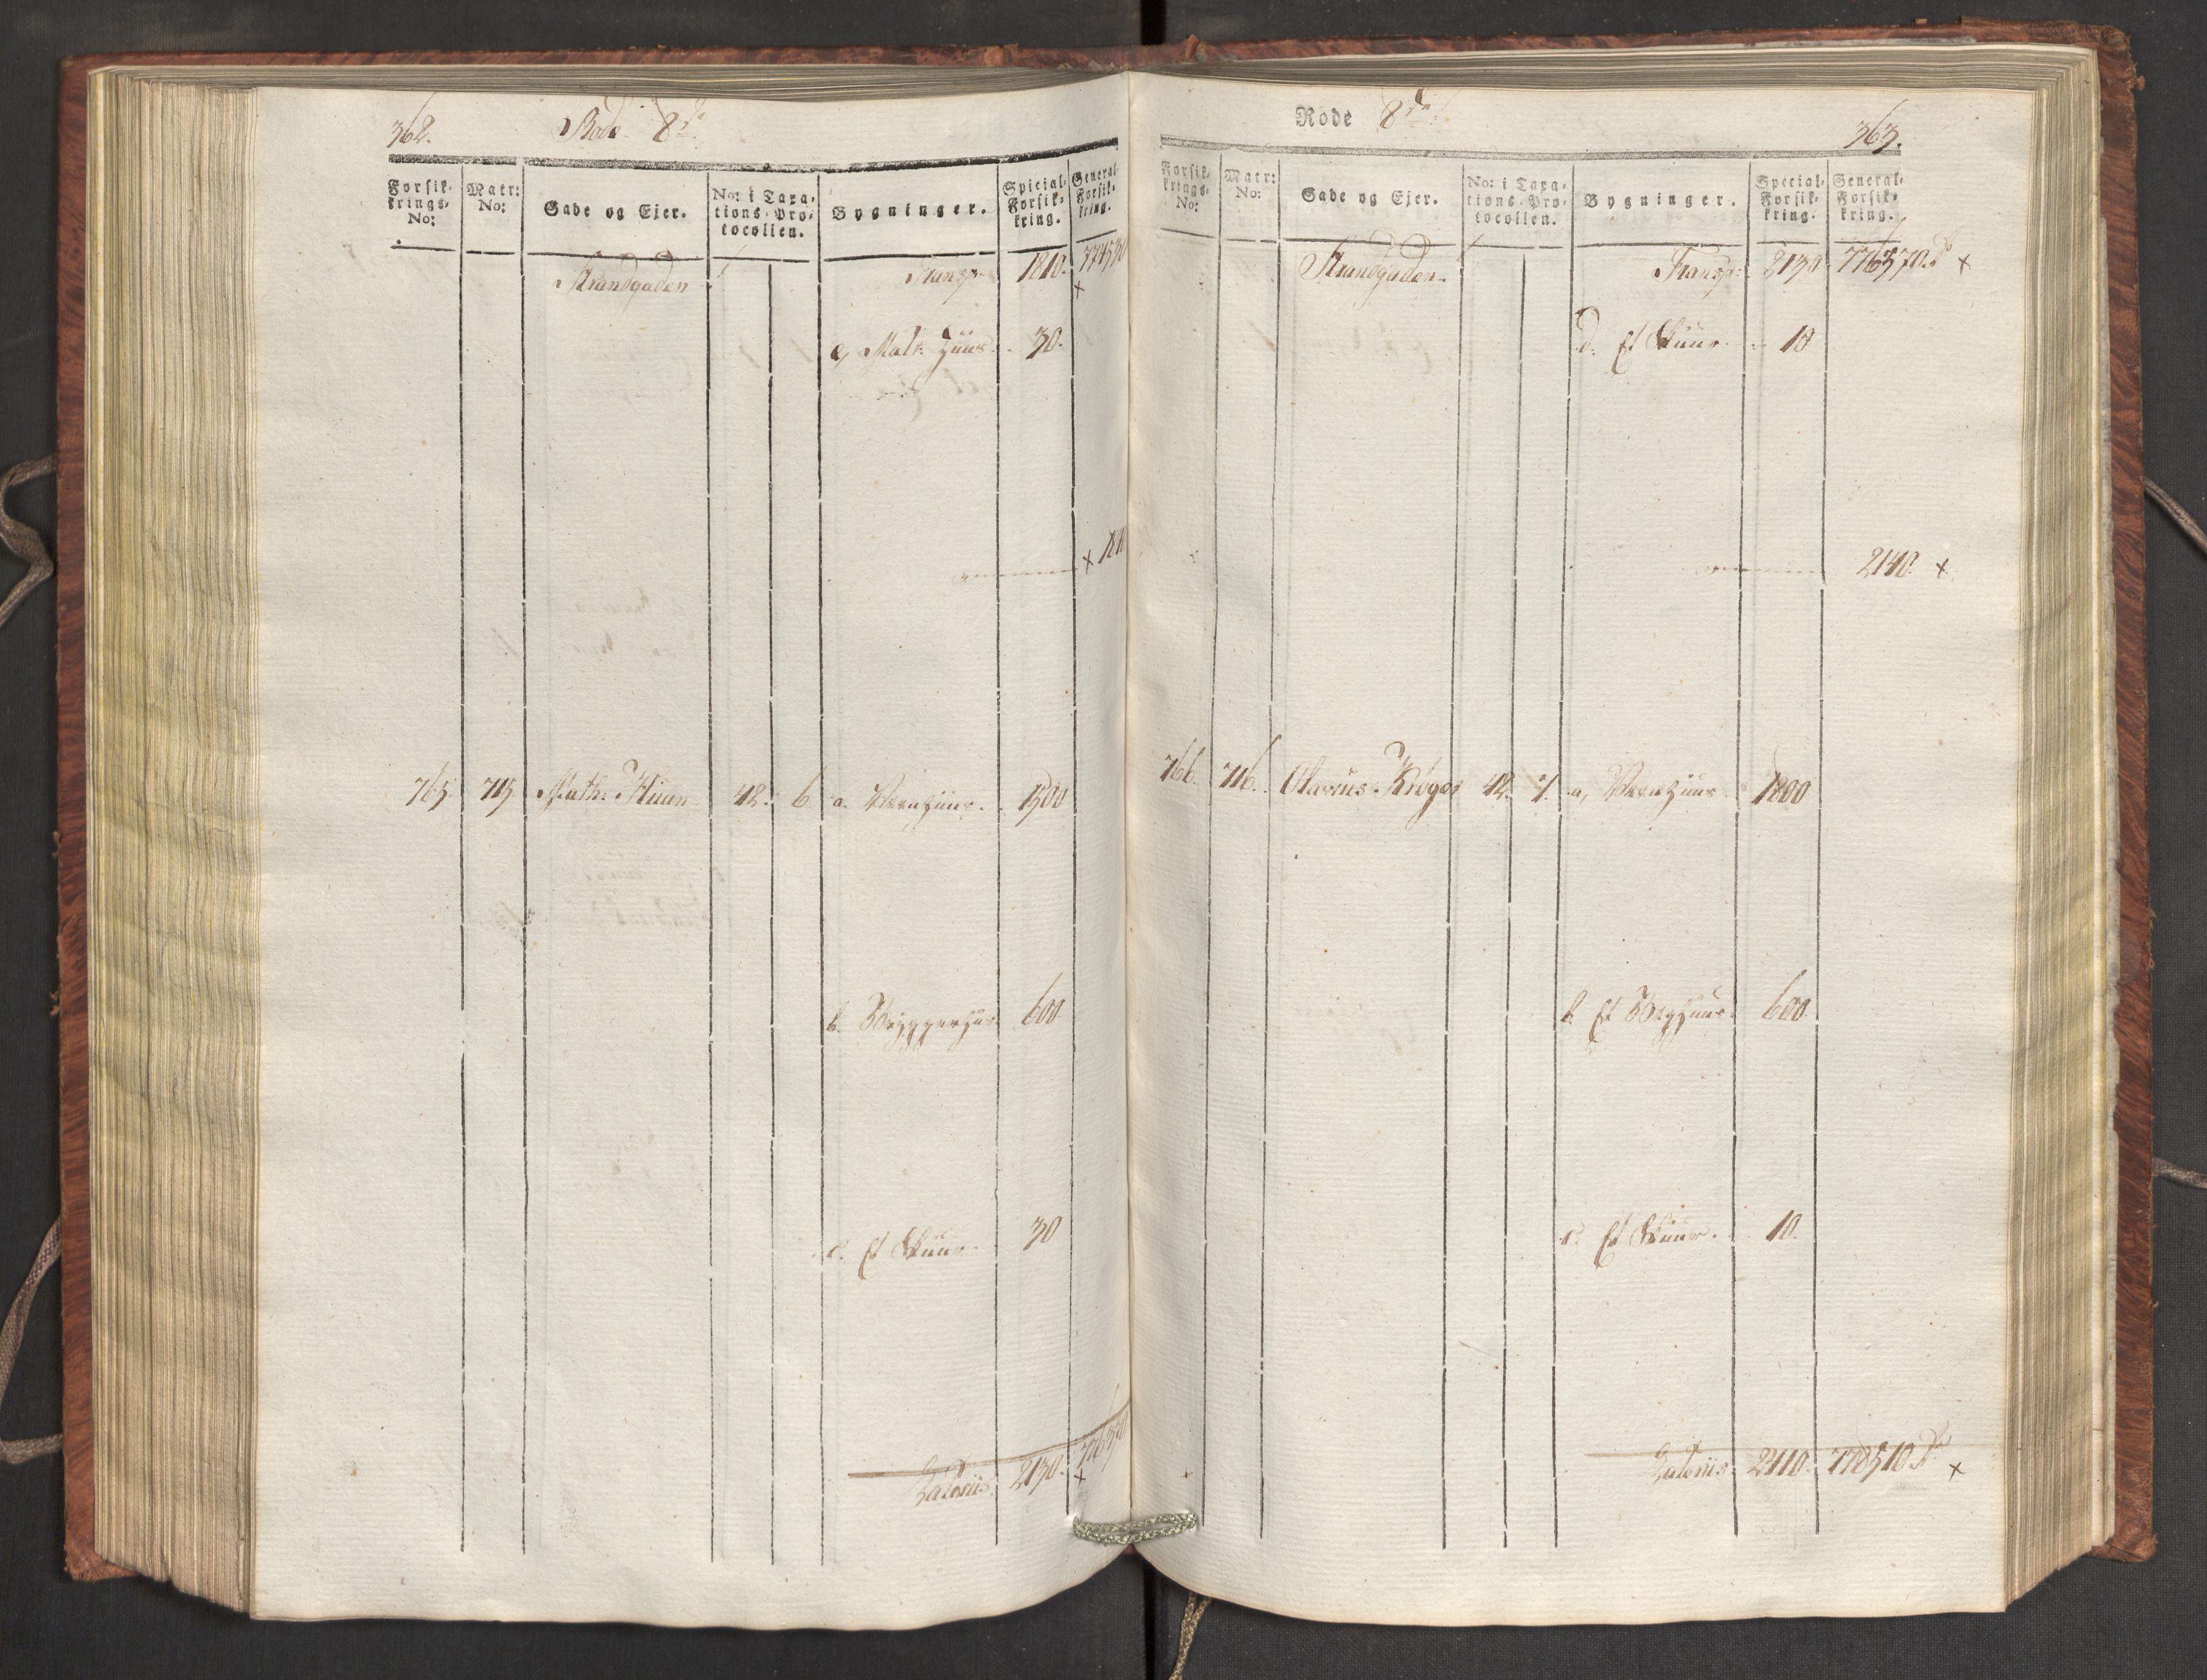 362. Rode 8de
Forsik-
krings-
No:
Matr:
No:
Gade og Ejer.
No: i Taxa-
tions-Pro-
tocollen.
Bygninger.
Special-
Forsik-
kring.
General-
Forsik-
kring.
Strandgaden Transp: 1810.
×
e, Malt Huus. 30.
×
765. 715 Math: Kuun 42. 6 a. Vaanhuus. 1500
b. Bryggerhus 600
c. Et Skuur. 30
Latus 2130.
×
Rode 8de 363.
Forsik-
krings-
No:
Matr:
No:
Gade og Ejer.
No: i Taxa-
tions-Pro-
tocollen.
Bygninger.
Special-
Forsik-
kring.
General-
Forsik-
kring.
Strandgaden. Transp: 2130 776370 ×
d. Et Skuur. 10
2140. ×
766. 716. Olavus Krøger 42. 7. a, Vaanhuus 1800
b. Et Bryghuus 600.
c. Et Skuur. 10.
Latus 2410. 778510 ×